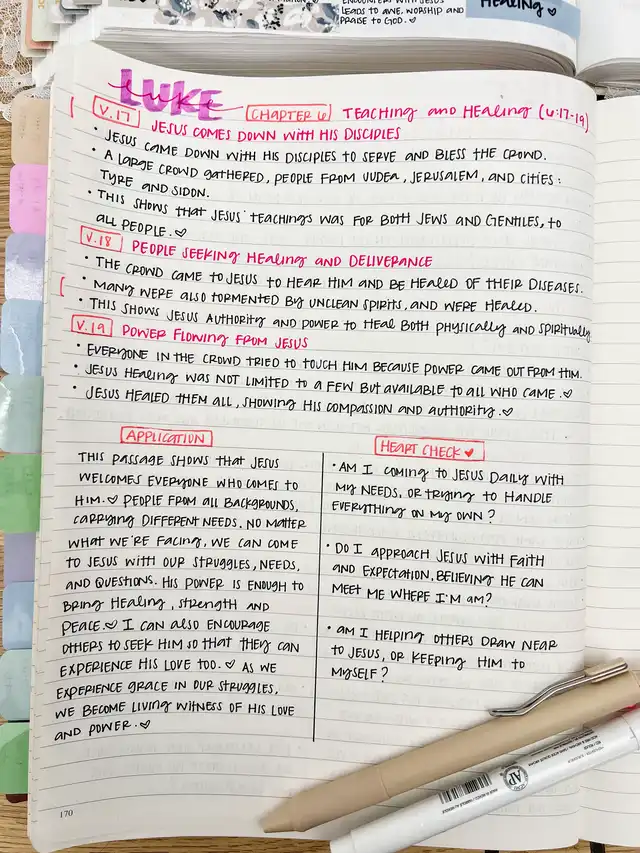 ENCOUNTERS WITH JESUS
LEADS TO AWE, WORSHIP AND
PRAISE TO GOD. ♡
HEALING ♡
LUKE
CHAPTER 6 TEACHING AND HEALING (6:17-19)
V.17 JESUS COMES DOWN WITH HIS DISCIPLES
• JESUS CAME DOWN WITH HIS DISCIPLES TO SERVE AND BLESS THE CROWD.
• A LARGE CROWD GATHERED, PEOPLE FROM JUDEA, JERUSALEM, AND CITIES:
TYRE AND SIDON.
• THIS SHOWS THAT JESUS' TEACHINGS WAS FOR BOTH JEWS AND GENTILES, TO
ALL PEOPLE. ♡
V.18 PEOPLE SEEKING HEALING AND DELIVERANCE
• THE CROWD CAME TO JESUS TO HEAR HIM AND BE HEALED OF THEIR DISEASES.
• MANY WERE ALSO TORMENTED BY UNCLEAN SPIRITS, AND WERE HEALED.
• THIS SHOWS JESUS AUTHORITY AND POWER TO HEAL BOTH PHYSICALLY AND SPIRITUALLY
V.19 POWER FLOWING FROM JESUS
• EVERYONE IN THE CROWD TRIED TO TOUCH HIM BECAUSE POWER CAME OUT FROM HIM.
• JESUS HEALING WAS NOT LIMITED TO A FEW BUT AVAILABLE TO ALL WHO CAME. ♡
• JESUS HEALED THEM ALL, SHOWING HIS COMPASSION AND AUTHORITY. ♡
APPLICATION
THIS PASSAGE SHOWS THAT JESUS
WELCOMES EVERYONE WHO COMES TO
HIM. ♡ PEOPLE FROM ALL BACKGROUNDS,
CARRYING DIFFERENT NEEDS, NO MATTER
WHAT WE'RE FACING, WE CAN COME
TO JESUS WITH OUR STRUGGLES, NEEDS,
AND QUESTIONS. HIS POWER IS ENOUGH TO
BRING HEALING, STRENGTH AND
PEACE. ♡ I CAN ALSO ENCOURAGE
OTHERS TO SEEK HIM SO THAT THEY CAN
EXPERIENCE HIS LOVE TOO. ♡ AS WE
EXPERIENCE GRACE IN OUR STRUGGLES,
WE BECOME LIVING WITNESS OF HIS LOVE
AND POWER. ♡
HEART CHECK ♥
• AM I COMING TO JESUS DAILY WITH
MY NEEDS, OR TRYING TO HANDLE
EVERYTHING ON MY OWN?
• DO I APPROACH JESUS WITH FAITH
AND EXPECTATION, BELIEVING HE CAN
MEET ME WHERE I'M AM?
• AM I HELPING OTHERS DRAW NEAR
TO JESUS, OR KEEPING HIM TO
MYSELF?
AP
170